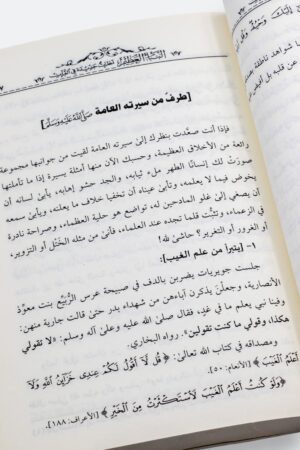 [طرفٌ من سيرته العامة ﷺ]
فإذا أنت صعَّدت بنظرك إلى سيرته العامة لقيت من جوانبها مجموعة
رائعة من الأخلاق العظيمة، وحسبك الآن منها أمثلة يسيرة إذا ما تأملتها
صورَتْ لك إنسانًا الطهر ملء ثيابه، والجد حشو إهابه، يأبى لسانه أن
يخوض فيما لا يعلمه، وتأبى عيناه أن تخفيا خلاف ما يعلنه، ويأبى سمعه
أن يصغي إلى غلو المادحين له، تواضع هو حلية العظماء، وصراحة نادرة
في الزعماء، وتثبُّت قلما تجده عند العلماء، فأنى من مثله الختْل أو التزوير،
أو الغرور أو التغرير؟ حاشى لله!
١- [يتبرأ من علم الغيب]:
جلست جويريات يضربن بالدف في صبيحة عرس الرُّبَيِّع بنت معوِّذ
الأنصارية، وجعلْنَ يذكرن آباءهن من شهداء بدر حتى قالت جارية منهن:
وفينا نبي يعلم ما في غدٍ، فقال صلى الله عليه وعلى آله وسلم: «لا تقولي
هكذا، وقولي ما كنت تقولين». رواه البخاري.
ومصداقه في كتاب الله تعالى: ﴿قُل لَّا أَقُولُ لَكُمْ عِندِى خَزَآئِنُ ٱللَّهِ وَلَآ
أَعْلَمُ ٱلْغَيْبَ﴾ [الأنعام: ٥٠].
﴿وَلَوْ كُنتُ أَعْلَمُ ٱلْغَيْبَ لَٱسْتَكْثَرْتُ مِنَ ٱلْخَيْرِ﴾ [الأعراف: ١٨٨].